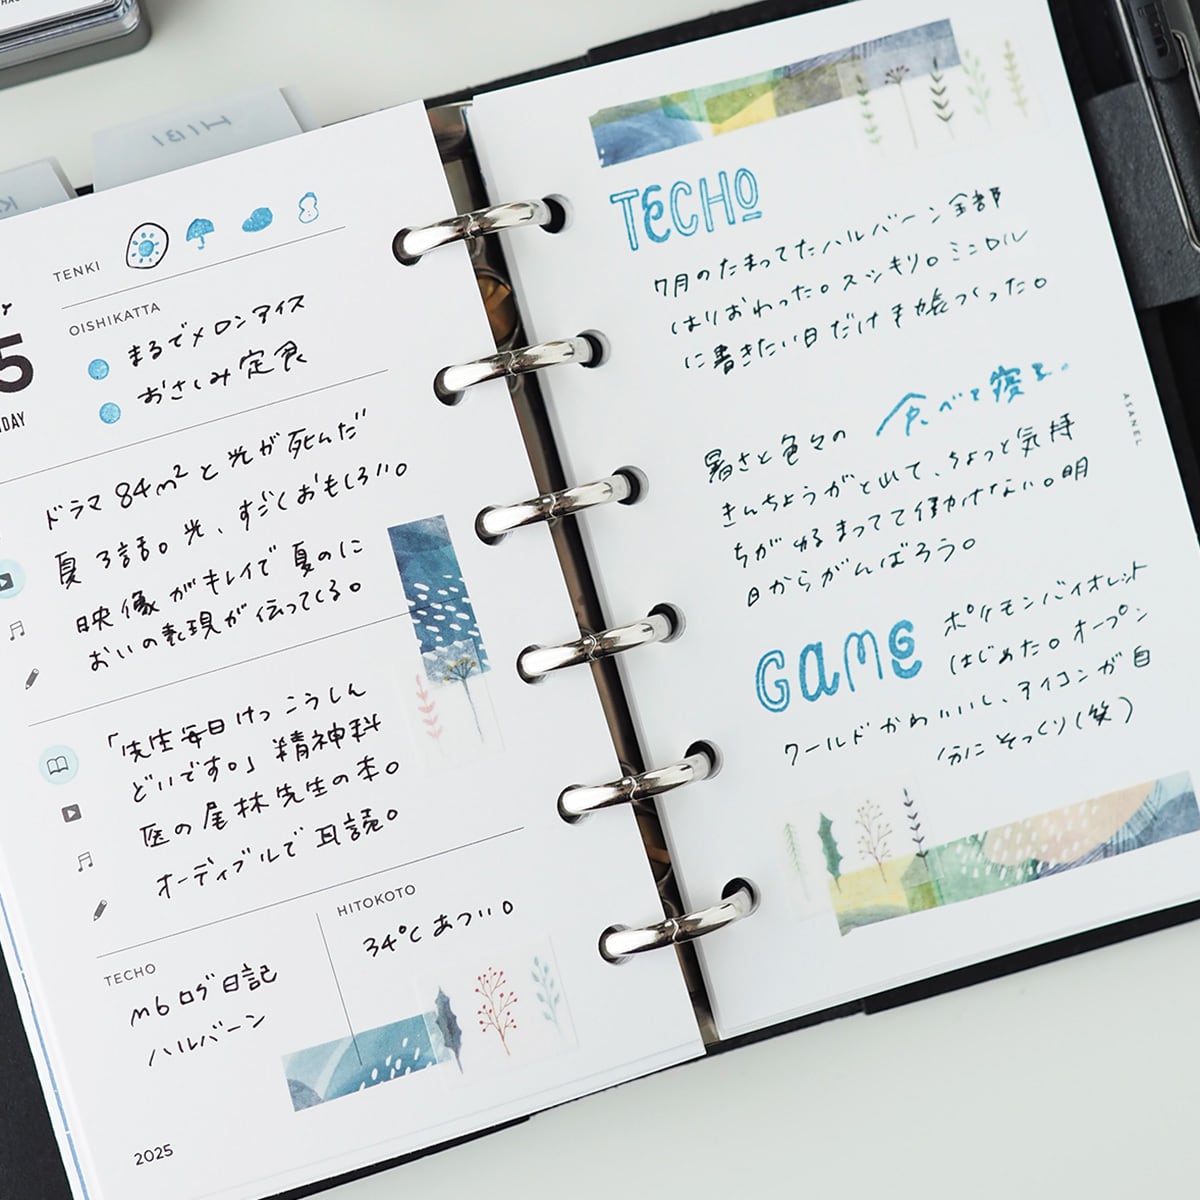 HIBI
TENKI
5
DAY
OISHIKATTA
まるでメロンアイス
おさしみ定食
ドラマ 84m²と光が死んだ
夏 3話。光、すごくおもしろい。
映像がキレイで夏のに
おいの表現が伝ってくる。
「先生毎日けっこうしん
どいです。」精神科
医の尾林先生の本。
オーディブルで耳読。
TECHO
m6ログ日記
ハルバーン
HITOKOTO
34℃あつい。
2025
TECHO
7月のたまってたハルバーン全部
はりおわった。スッキリ。ミニロル
に書きたい日だけ手帳つくった。
食べて寝る。
暑さと色々の
きんちょうがとれて、ちょっと気持
ちがゆるまってて働けない。明
日からがんばろう。
GAME
ポケモンバイオレット
はじめた。オープン
ワールドかわいいし、アイコンが自
分にそっくり(笑)
ASANEL